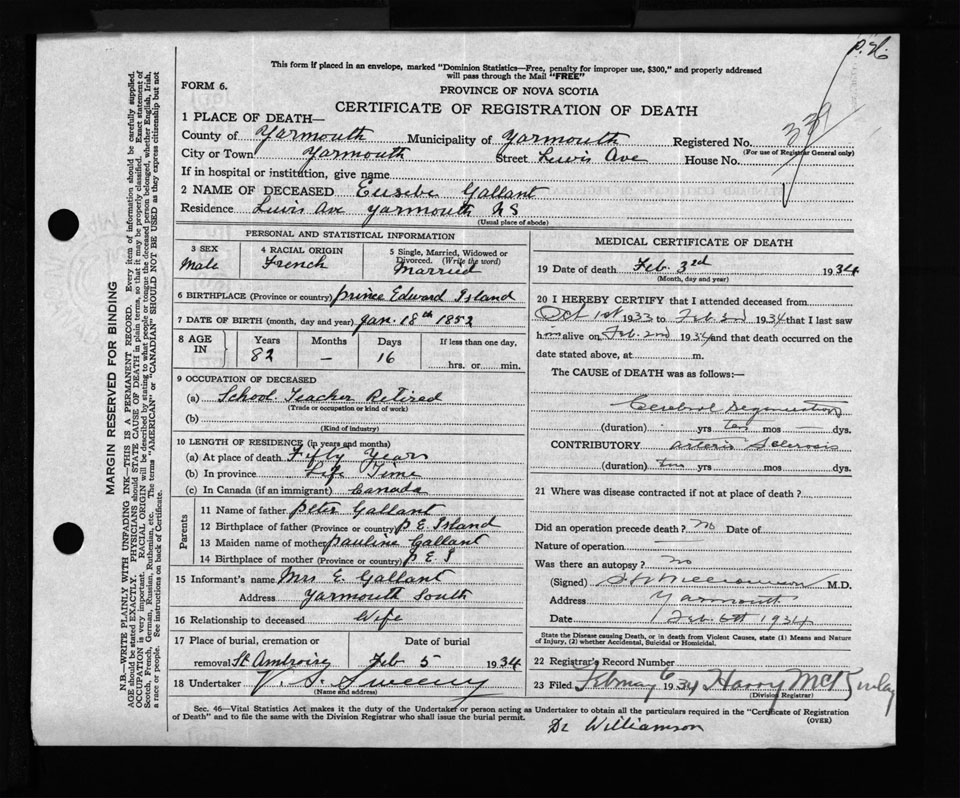 P.H.
This form if placed in an envelope, marked "Dominion Statistics—Free, penalty for improper use, $300," and properly addressed
will pass through the Mail "FREE"
FORM 6.
PROVINCE OF NOVA SCOTIA
CERTIFICATE OF REGISTRATION OF DEATH
1 PLACE OF DEATH—
County of Yarmouth Municipality of Yarmouth Registered No. 339
(For use of Registrar General only)
City or Town Yarmouth Street Lewis Ave House No.
If in hospital or institution, give name
2 NAME OF DECEASED Eusebe Gallant
Residence Lewis Ave Yarmouth NS
(Usual place of abode)
PERSONAL AND STATISTICAL INFORMATION
3 SEX
Male
4 RACIAL ORIGIN
French
5 Single, Married, Widowed or
Divorced. (Write the word)
Married
6 BIRTHPLACE (Province or country) Prince Edward Island
7 DATE OF BIRTH (month, day and year) Jan. 18th 1852
8 AGE IN
Years Months Days If less than one day,
82 — 16 hrs. or min.
9 OCCUPATION OF DECEASED
(a) School Teacher Retired
(Trade or occupation or kind of work)
(b)
(Kind of industry)
10 LENGTH OF RESIDENCE (in years and months)
(a) At place of death Fifty Years
(b) In province Life Time
(c) In Canada (if an immigrant) Canada
Parents
11 Name of father Peter Gallant
12 Birthplace of father (Province or country) P E Island
13 Maiden name of mother Pauline Gallant
14 Birthplace of mother (Province or country) P E I
15 Informant's name Mrs E. Gallant
Address Yarmouth South
16 Relationship to deceased Wife
17 Place of burial, cremation or Date of burial
removal St Ambroise Feb 5 1934
18 Undertaker V. S. Sweeny
(Name and address)
MEDICAL CERTIFICATE OF DEATH
19 Date of death Feb 3rd 1934
(Month, day and year)
20 I HEREBY CERTIFY that I attended deceased from
Oct 1st 1933 to Feb 2nd 1934 that I last saw
him alive on Feb 2nd 1934 and that death occurred on the
date stated above, at m.
The CAUSE of DEATH was as follows:—
Cerebral Degeneration
(duration) yrs ten mos — dys.
CONTRIBUTORY arterio Sclerosis
(duration) ten yrs mos dys.
21 Where was disease contracted if not at place of death?
Did an operation precede death? No Date of
Nature of operation —
Was there an autopsy? No
(Signed) M.D.
Address Yarmouth
Date Feb. 6th 1934
State the Disease causing Death, or in death from Violent Causes, state (1) Means and Nature
of Injury, (2) whether Accidental, Suicidal or Homicidal.
22 Registrar's Record Number
23 Filed February 6 1934 Harry McKinlay
(Division Registrar)
Sec. 46—Vital Statistics Act makes it the duty of the Undertaker or person acting as Undertaker to obtain all the particulars required in the "Certificate of Registration
of Death" and to file the same with the Division Registrar who shall issue the burial permit. (OVER)
Dr Williamson
MARGIN RESERVED FOR BINDING
N.B.—WRITE PLAINLY WITH UNFADING INK—THIS IS A PERMANENT RECORD. Every item of information should be carefully supplied.
AGE should be stated EXACTLY. PHYSICIANS should STATE CAUSE OF DEATH in plain terms, so that it may be properly classified. Exact statement of
OCCUPATION is very important. RACIAL ORIGIN will be described by stating to what people or tongue the deceased person belonged, whether English, Irish,
Scotch, French, German, Russian, Ruthenian, etc. The terms "AMERICAN" or "CANADIAN" SHOULD NOT BE USED as they express citizenship but not
a race or people. See instructions on back of Certificate.